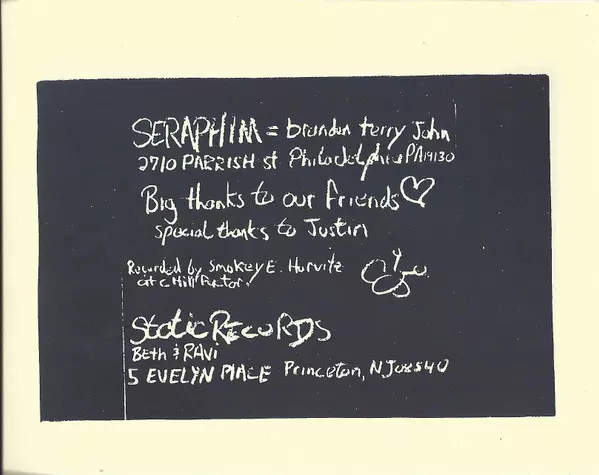 SERAPHIM = brandon terry John
2710 PARRISH st Philadelphia PA 19130
Big thanks to our friends ♡
special thanks to Justin
Recorded by Smokey E. Hurvitz
at Chill Factor.
Static RecoRDS
BetH & RAVi
5 EVELYN PlACE Princeton, NJ 08540